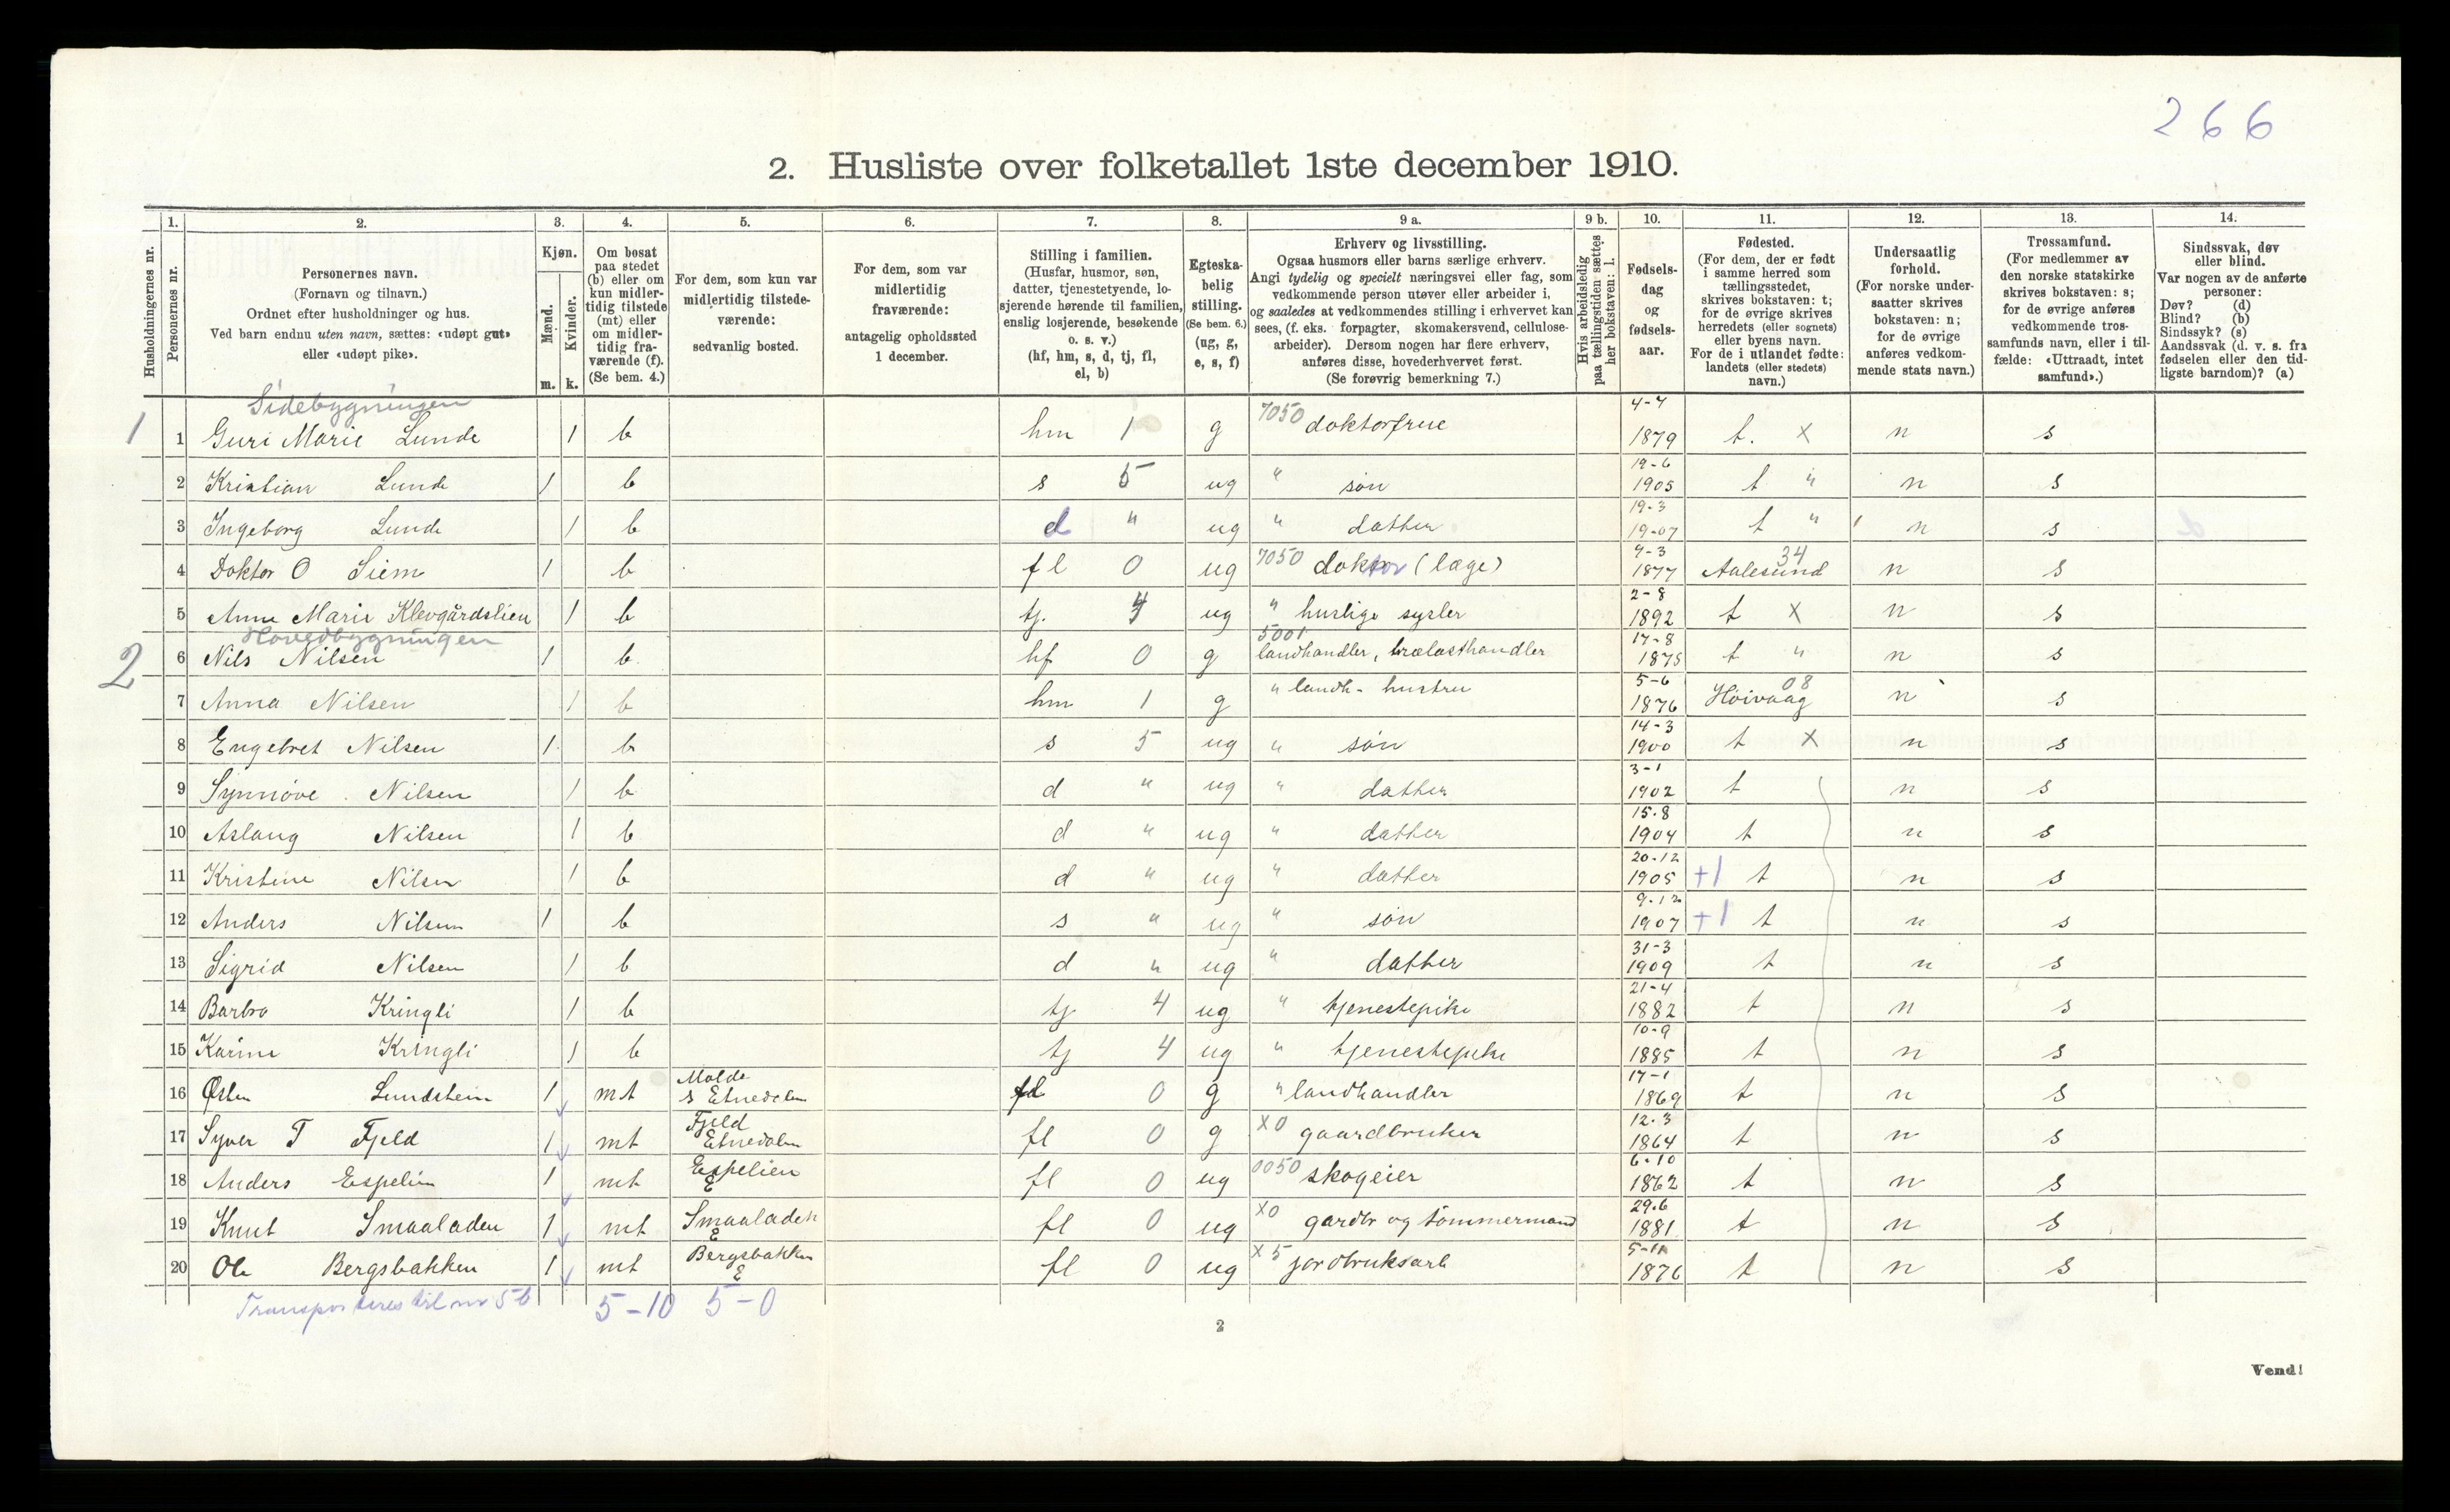 266
2. Husliste over folketallet 1ste december 1910.
Husholdningernes nr.
1. Personernes nr.
2. Personernes navn. (Fornavn og tilnavn.) Ordnet efter husholdninger og hus. Ved barn endnu uten navn, sættes: «udøpt gut» eller «udøpt pike».
3. Kjøn. Mænd. m. Kvinder. k.
4. Om bosat paa stedet (b) eller om kun midlertidig tilstede (mt) eller om midlertidig fraværende (f). (Se bem. 4.)
5. For dem, som kun var midlertidig tilstedeværende: sedvanlig bosted.
6. For dem, som var midlertidig fraværende: antagelig opholdssted 1 december.
7. Stilling i familien. (Husfar, husmor, søn, datter, tjenestetyende, losjerende hørende til familien, enslig losjerende, besøkende o. s. v.) (hf, hm, s, d, tj, fl, el, b)
8. Egteskabelig stilling. (Se bem. 6.) (ug, g, e, s, f)
9 a. Erhverv og livsstilling. Ogsaa husmors eller barns særlige erhverv. Angi tydelig og specielt næringsvei eller fag, som vedkommende person utøver eller arbeider i, og saaledes at vedkommendes stilling i erhvervet kan sees, (f. eks. forpagter, skomakersvend, cellulosearbeider). Dersom nogen har flere erhverv, anføres disse, hovederhvervet først. (Se forøvrig bemerkning 7.)
9 b. Hvis arbeidsledig paa tællingstiden sættes her bokstaven: l.
10. Fødselsdag og fødselsaar.
11. Fødested. (For dem, der er født i samme herred som tællingsstedet, skrives bokstaven: t; for de øvrige skrives herredets (eller sognets) eller byens navn. For de i utlandet fødte: landets (eller stedets) navn.)
12. Undersaatlig forhold. (For norske undersaatter skrives bokstaven: n; for de øvrige anføres vedkommende stats navn.)
13. Trossamfund. (For medlemmer av den norske statskirke skrives bokstaven: s; for de øvrige anføres vedkommende trossamfunds navn, eller i tilfælde: «Uttraadt, intet samfund».)
14. Sindssvak, døv eller blind. Var nogen av de anførte personer: Døv? (d) Blind? (b) Sindssyk? (s) Aandssvak (d. v. s. fra fødselen eller den tidligste barndom)? (a)
Sidebygningen
1 1 Guri Marie Lunde 1 b hm 1 g 7050 doktorfrue 4-7 1879 t. X n s
2 Kristian Lunde 1 b s 5 ug " søn 19-6 1905 t " n s
3 Ingeborg Lunde 1 b d " ug " datter 19-3 19-07 t " n s
4 Doktor O Siem 1 b fl 0 ug 7050 doktor (læge) 9-3 1877 Aalesund 34 n s
5 Anne Marie Klevgårdslien 1 b tj. 4 ug " huslige sysler 2-8 1892 t X n s
Hovedbygningen
2 6 Nils Nilsen 1 b hf 0 g 5001 landhandler, trælasthandler 17-8 1875 t " n s
7 Anna Nilsen 1 b hm 1 g " landh- hustru 5-6 1876 Høivaag 08 n s
8 Engebret Nilsen 1 b s 5 ug " søn 14-3 1900 t X n s
9 Synnøve Nilsen 1 b d " ug " datter 3-1 1902 t n s
10 Aslaug Nilsen 1 b d " ug " datter 15.8 1904 t n s
11 Kristine Nilsen 1 b d " ug " datter 20-12 1905 +1 t n s
12 Anders Nilsen 1 b s " ug " søn 9-12 1907 +1 t n s
13 Sigrid Nilsen 1 b d " ug " datter 31-3 1909 t n s
14 Barbro Kringli 1 b tj 4 ug " tjenestepike 21-4 1882 t n s
15 Karine Kringli 1 b tj 4 ug " tjenestepike 10-9 1885 t n s
16 Østen Lundstein 1 mt Molde s Etnedalen fl 0 g " landhandler 17-1 1869 t n s
17 Syver T Fjeld 1 mt Fjeld Etnedalen fl 0 g X0 gaardbruker 12.3 1864 t n s
18 Anders Espelien 1 mt Espelien E fl 0 ug 0050 skogeier 6-10 1862 t n s
19 Knut Smaaladen 1 mt Smaaladen E fl 0 ug X0 gardbr og tømmermand 29.6 1881 t n s
20 Ole Bergsbakken 1 mt Bergsbakken E fl 0 ug X5 jordbruksarb 5-11 1876 t n s
Transporteres til nr 5b 5-10 5-0
2
Vend!